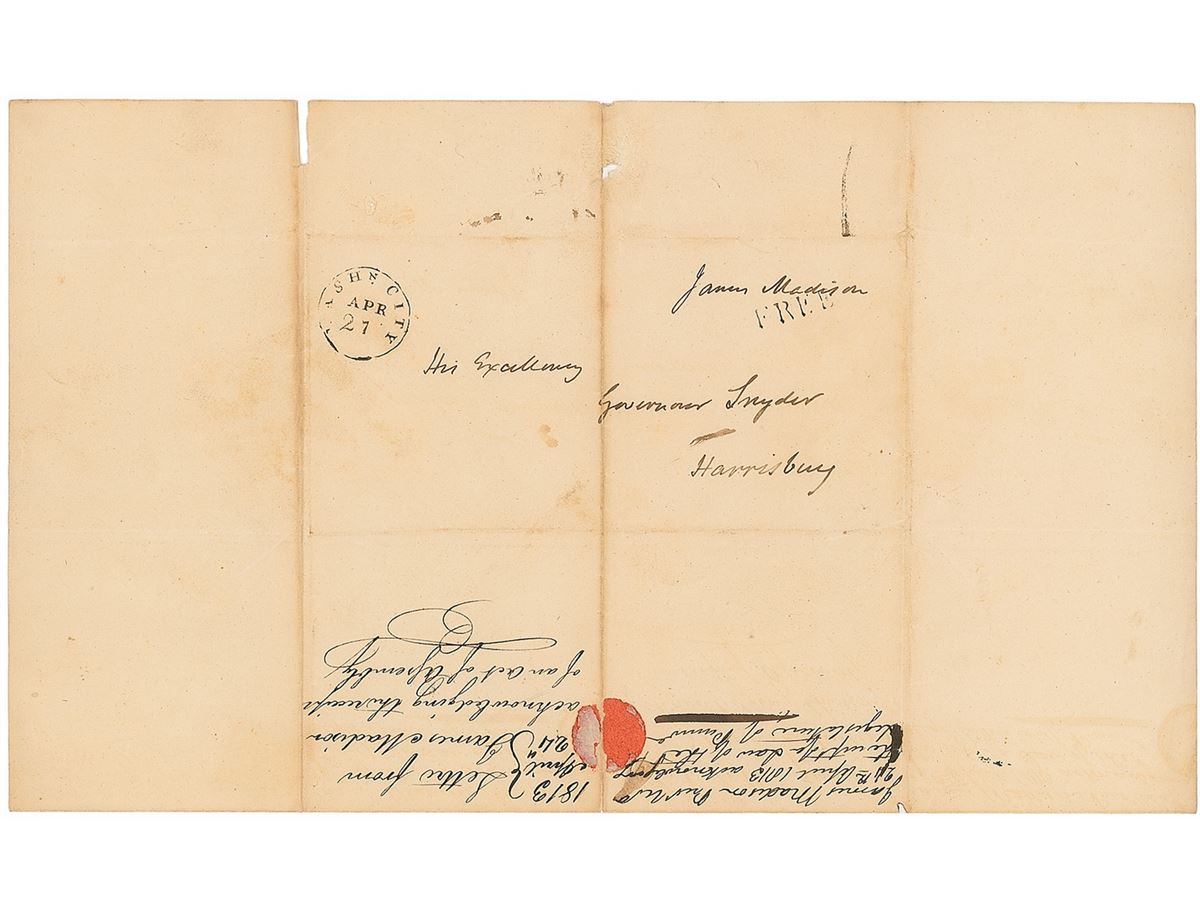 WASHN. CITY
APR
27
James Madison
FREE
His Excellency
Governour Snyder
Harrisburg
1813
April
24th
Letter from
James Madison
acknowledging the receipt
of an act of Assembly
James Madison Pres. U.S.
24th April 1813 acknowledging
receipt of a Law of the
Legislature of Penna